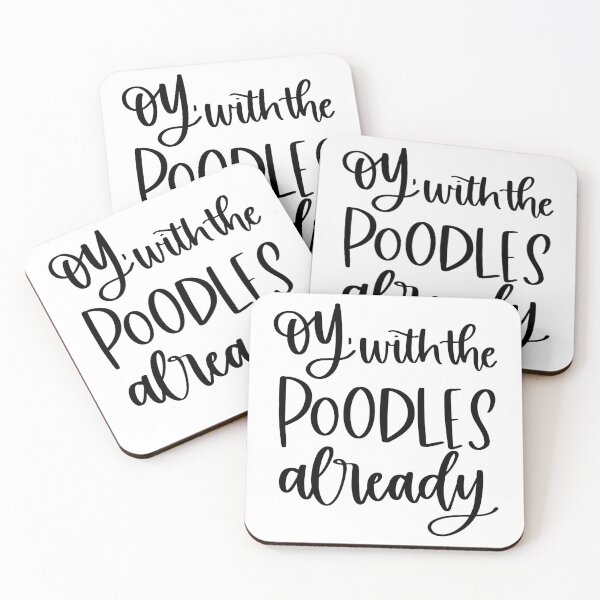 OY, with the
POODLES
OY, with the
POODLES
already
OY, with the
POODLES
alread
OY, with the
POODLES
already